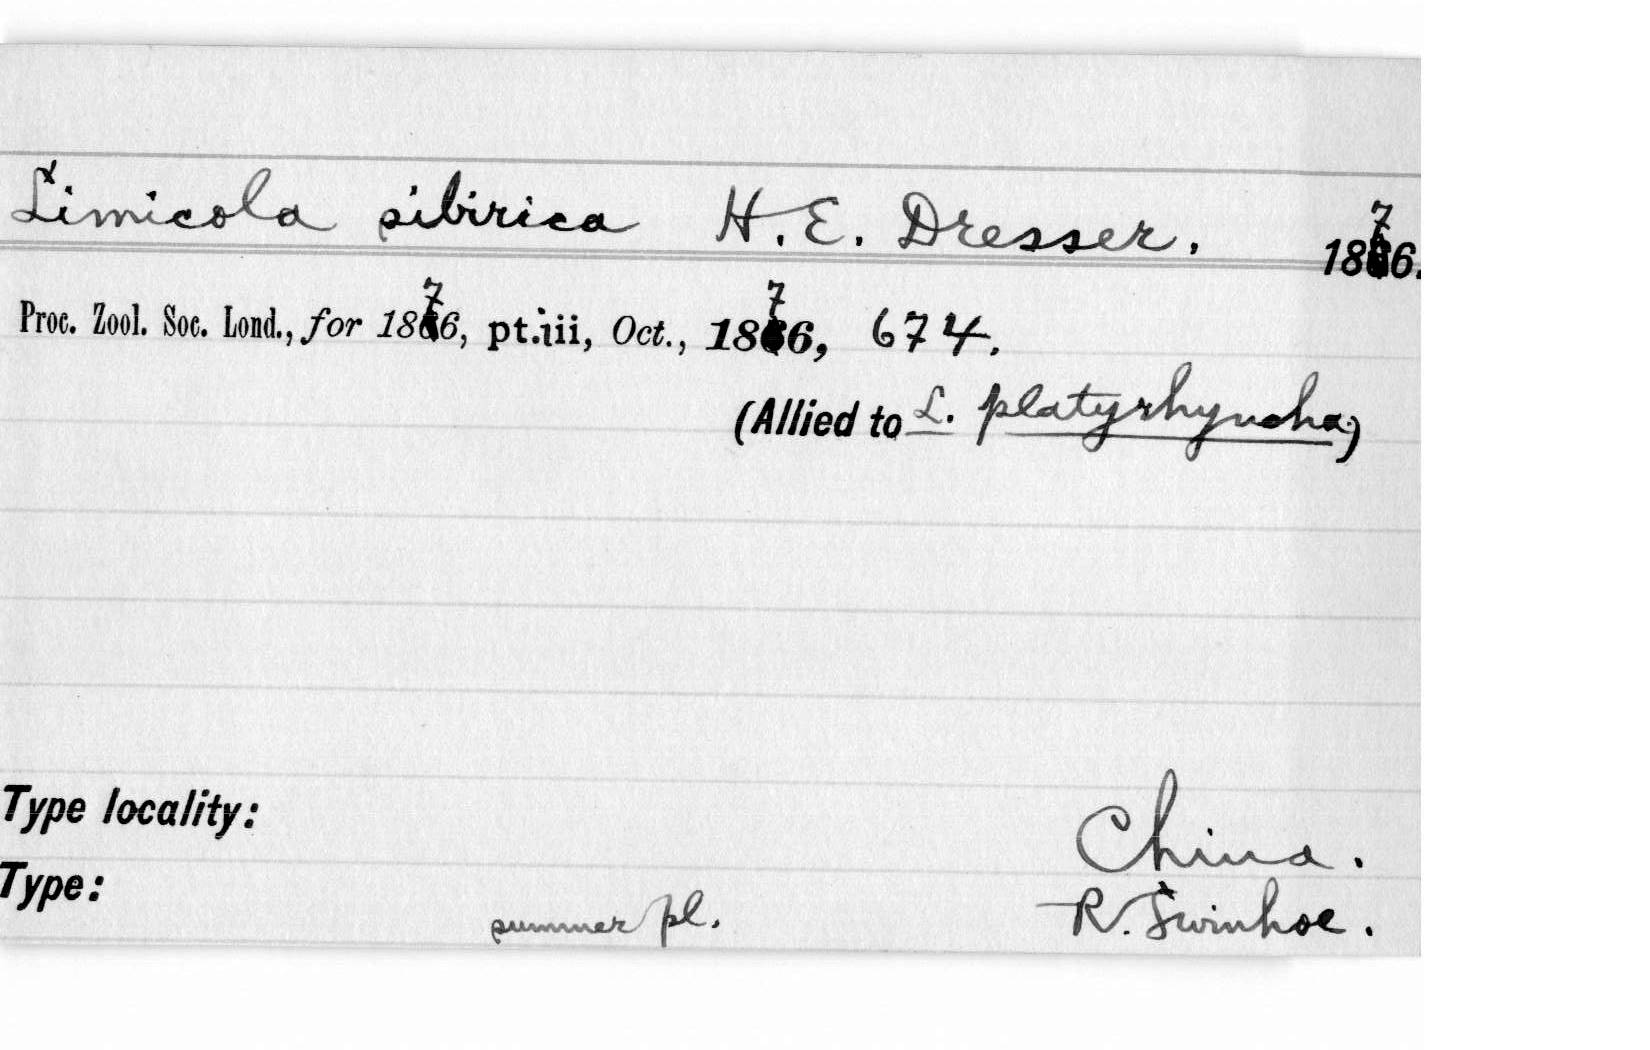 Limicola sibirica H. E. Dresser. 1876.
Proc. Zool. Soc. Lond., for 1876, pt. iii, Oct., 1876, 674.
(Allied to L. platyrhyncha.)
Type locality: China.
Type: summer pl. R. Swinhoe.